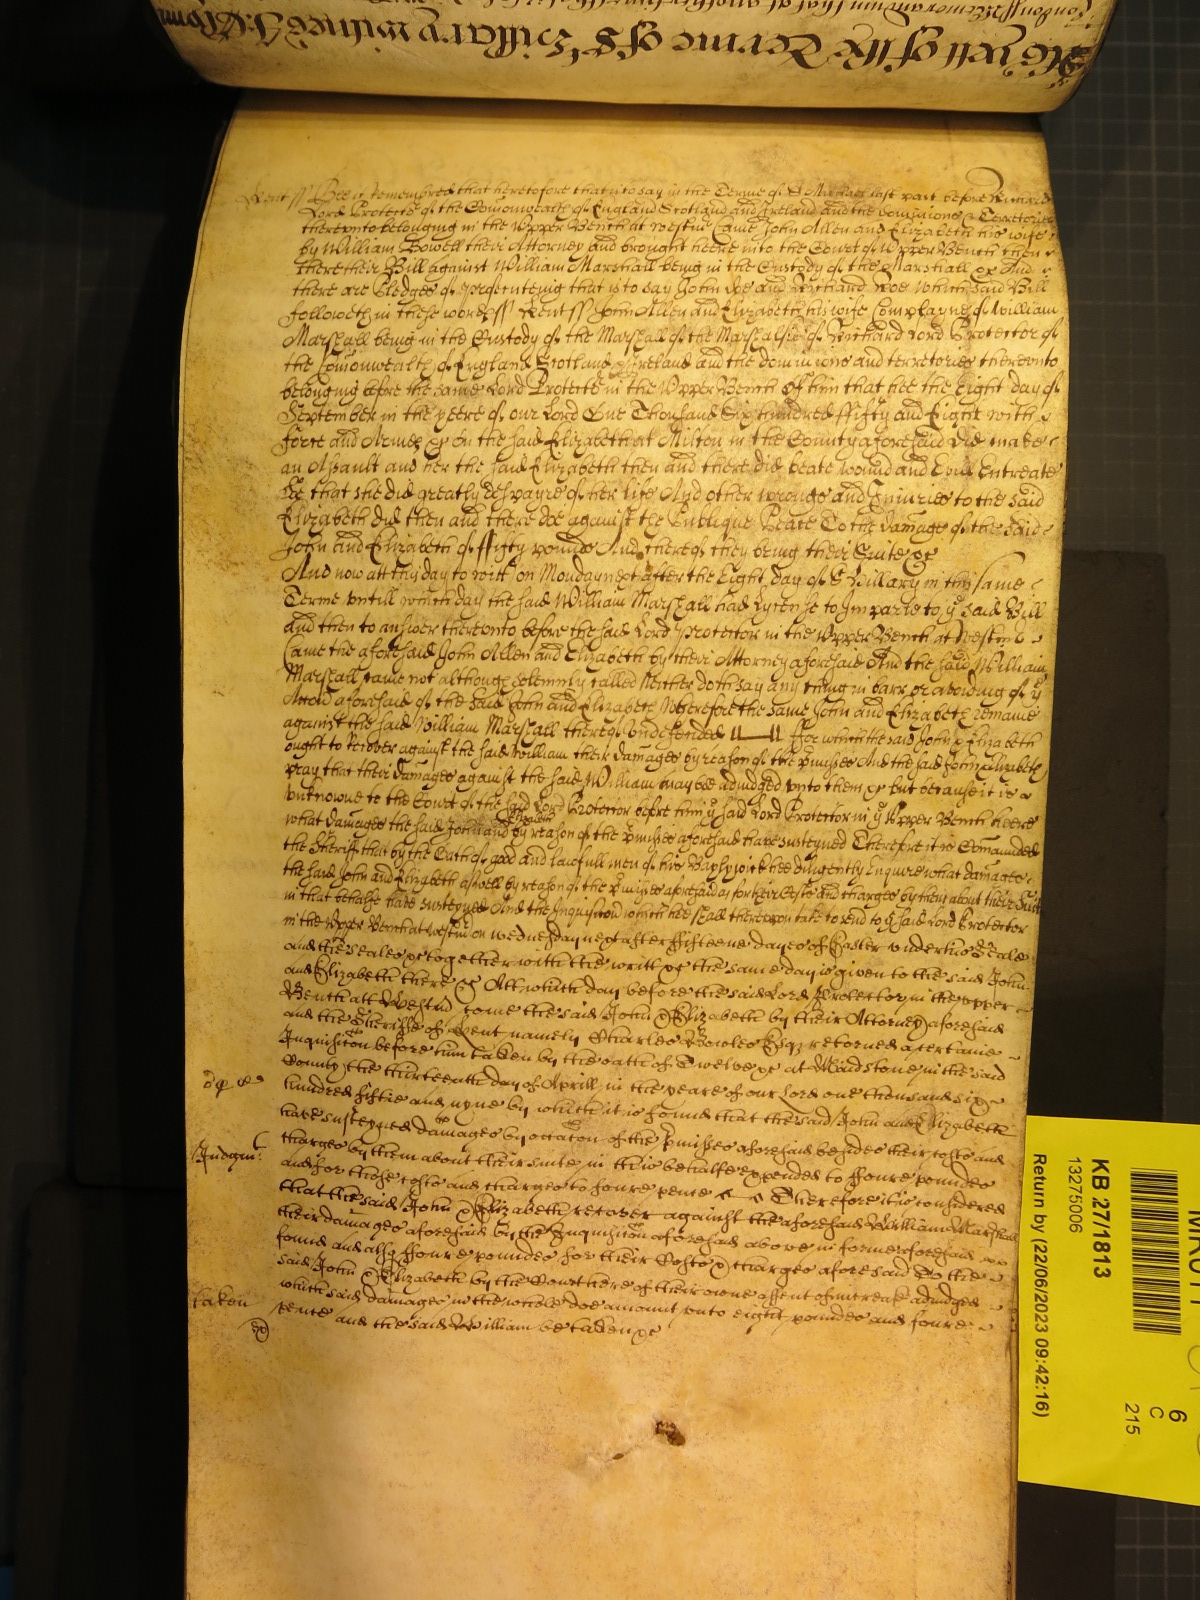 Roll of the Terme of St Hillary witnes J: Glynn
London ss Memorandum that at another tyme
Kent ss Bee it remembred that heretofore that is to say in the Terme of St Michael last past before Richard
Lord Protector of the Comonwealth of England Scotland and Ireland and the dominions & Terretories
therevnto belonging in the Vpper Bench at Westmr Came John Allen and Elizabeth his wife
by William Bowell their Attorney and brought heere into the Court of Vpper Bench then
there their Bill against William Marshall being in the Custody of the Marshall &c And
there are Pledges of prosecuteing that is to say John Doe and Richard Roe Which said Bill
followeth in these words ss Kent ss John Allen and Elizabeth his wife Complayne of William
Marshall being in the Custody of the Marshall of the Marshalsie of Richard Lord Protector of
the Comonwealth of England Scotland & Ireland and the dominions and terretories therevnto
belonging before the same Lord Protector in the Vpper Bench Of him that hee the Eight day of
September in the yeere of our Lord One Thousand Six hundred ffifty and Eight with
force and Armes &c On the said Elizabeth at Milton in the County aforesaid did make
an Assault and her the said Elizabeth then and there did beate wound and Evill Entreate
So that she did greatly despayre of her life And other wrongs and Iniuries to the said
Elizabeth did then and there doe against the Publique Peace To the damage of the said
John and Elizabeth of ffifty pounds And thereof they bring their Suite &c
And now att this day to witt on Monday next after the Eight day of St Hillary in this same
Terme vntill which day the said William Marshall had Lycense to Imparle to ye said Bill
and then to answer therevnto before the said Lord Protector in the Vpper Bench at Westmr
Came the aforesaid John Allen and Elizabeth by their Attorney aforesaid And the said William
Marshall came not although solemnly called Neither doth say any thing in barr or avoiding of ye
Accon aforesaid of the said John and Elizabeth Wherefore the same John and Elizabeth remaine
against the said William Marshall thereof Vndefended ffor which the said John & Elizabeth
ought to Recover against the said William their damages by reason of the pmisses And the said John & Elizabeth
pray that their damages against the said William may bee adiudged vnto them &c but because it is
vnknowne to the Court of the said Lord Protector before him ye said Lord Protector in ye Vpper Bench heere
what damages the said John and Elizabeth by reason of the pmisses aforesaid have susteyned Therefore it is Comanded
the Sheriff that by the Oath of good and lawfull men of his Baylywick hee diligently Enquire what damages
the said John and Elizabeth aswell by reason of the pmisses aforesaid as for their Costs and charges by them about their Suit
in that behalfe have susteyned And the Inquisicon which hee shall thereupon take to send to ye said Lord Protector
in the Vpper Bench at Westmr on wednesday next after ffifteene dayes of Easter vnder his Seale
and the seales &c together with the writt &c the same day is given to the said John
and Elizabeth there &c Att which day before the said Lord Protector in the vpper
Bench att Westmr come the said John & Elizabeth by their Attorney aforesaid
and the Sheriffe of Kent namely Charles Bowles Esqr retorned a certaine
Inquisicon before him taken by the oath of Twelve &c at Maidstone in the said
County the thirteenth day of Aprill in the yeare of our Lord one thousand six
hundred fiftie and nyne by which it is found that the said John and Elizabeth
have susteyned damages by occacon of the pmisses aforesaid besides their costs and
Judgmt
charges by them about their suite in this behalfe expended to ffoure poundes
and for those costs and charges to foure pence Therefore it is considered
that the said John & Elizabeth recover against the aforesaid William Marshall
their damages aforesaid by the Inquisicon aforesaid above in forme aforesaid
found and also ffoure poundes for their Costs & charges aforesaid To the
said John & Elizabeth by the Court here of their owne assent of increase adiudged
which said damages in the whole doe amount vnto eight poundes and foure
taken
pence and the said William be taken &c
KB 27/1813
13275006
Return by (22/06/2023 09:42:16)
6
C
215